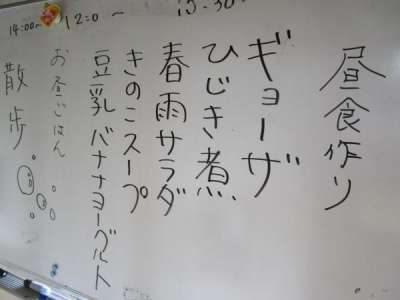 10:30~
昼食作り
ギョーザ
ひじき煮
春雨サラダ
きのこスープ
豆乳バナナヨーグルト
12:0 ~
お昼ごはん
14:00~
散歩